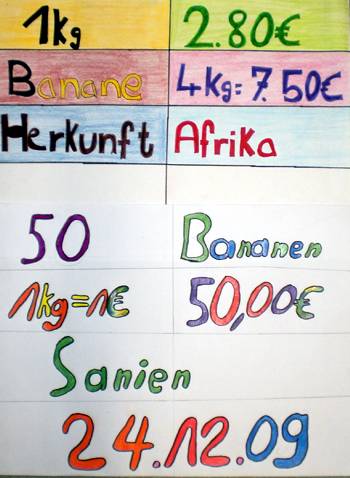 1kg 2.80€
Banane 4kg= 7.50€
Herkunft Afrika
50 Bananen
1kg=1€ 50,00€
Sanien
24.12.09